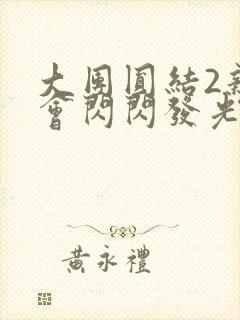 大團圓結2新
會閃閃發光
黃永禮